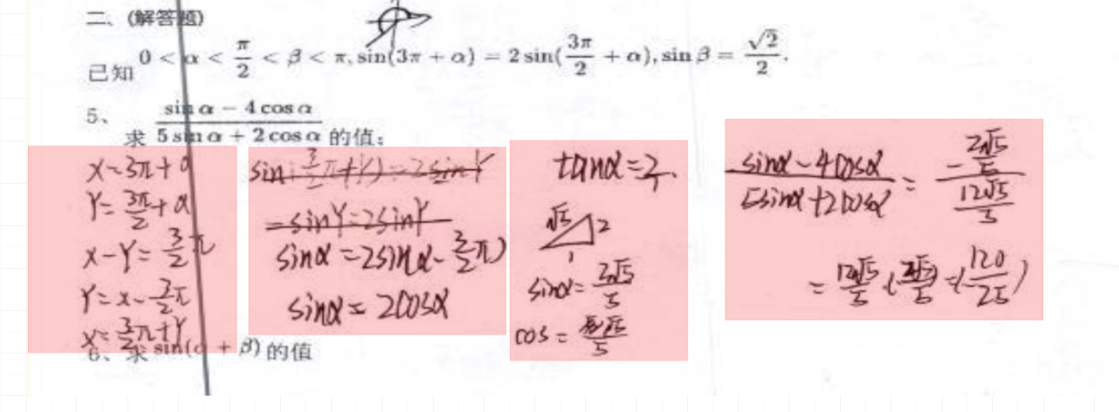 二、(解答题)
已知 0 < α < π/2 < β < π, sin(3π + α) = 2 sin(3π/2 + α), sin β = √2/2.
5、求 (sin α − 4 cos α)/(5 sin α + 2 cos α) 的值;
x=3π+α
Y=3π/2+α
x-Y=3/2π
Y=x-3/2π
x=3/2π+Y
=sinY=2sinY
sinα=2sin(α-3/2π)
sinα=2cosα
tanα=2/1.
√5 2
1
sinα=2√5/5
cos=√5/5
(sinα-4cosα)/(5sinα+2cosα) = (-2√5/5)/(12√5/5)
6、求 sin(α + β) 的值